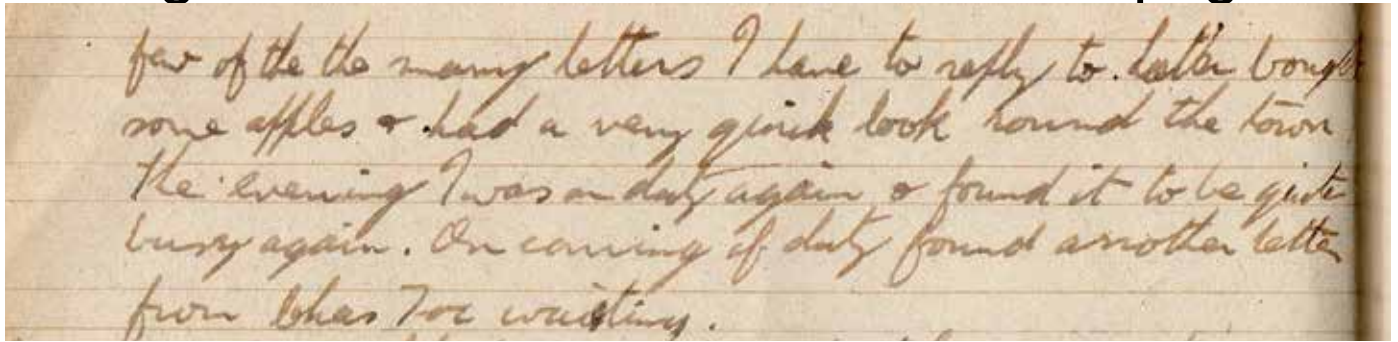 few of the the many letters I have to reply to. Later bought
some apples & had a very quick look round the town
The evening I was on duty again & found it to be quite
busy again. On coming of duty found another letter
from Chas waiting.